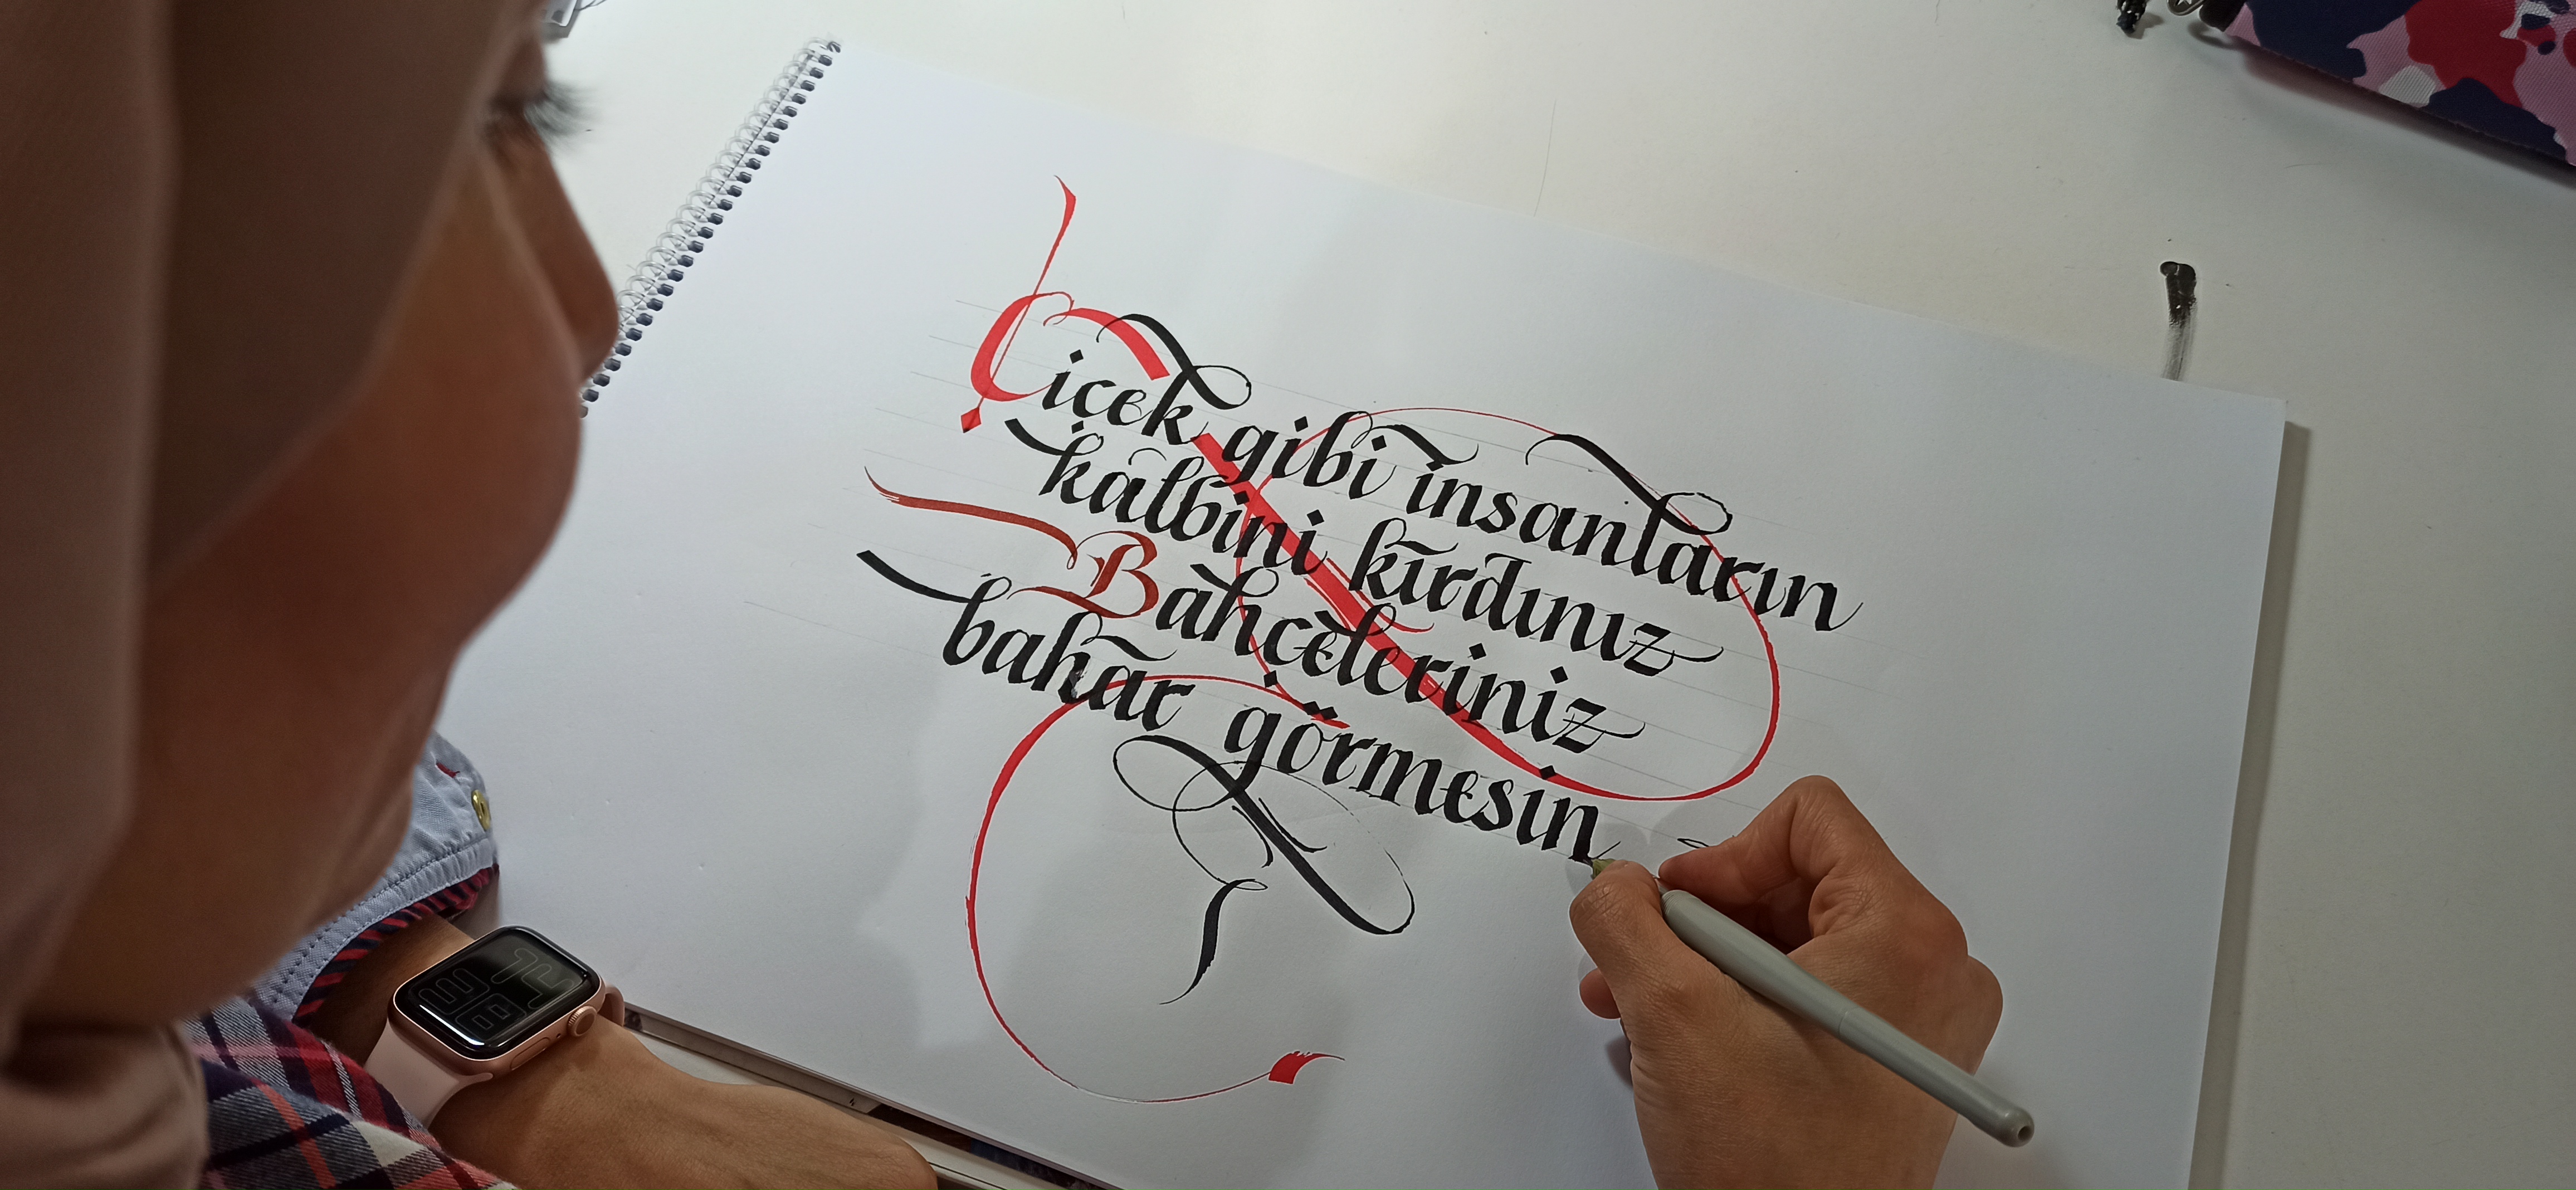 Çiçek gibi insanların
kalbini kırdınız
Bahçeleriniz
bahar görmesin
14
38